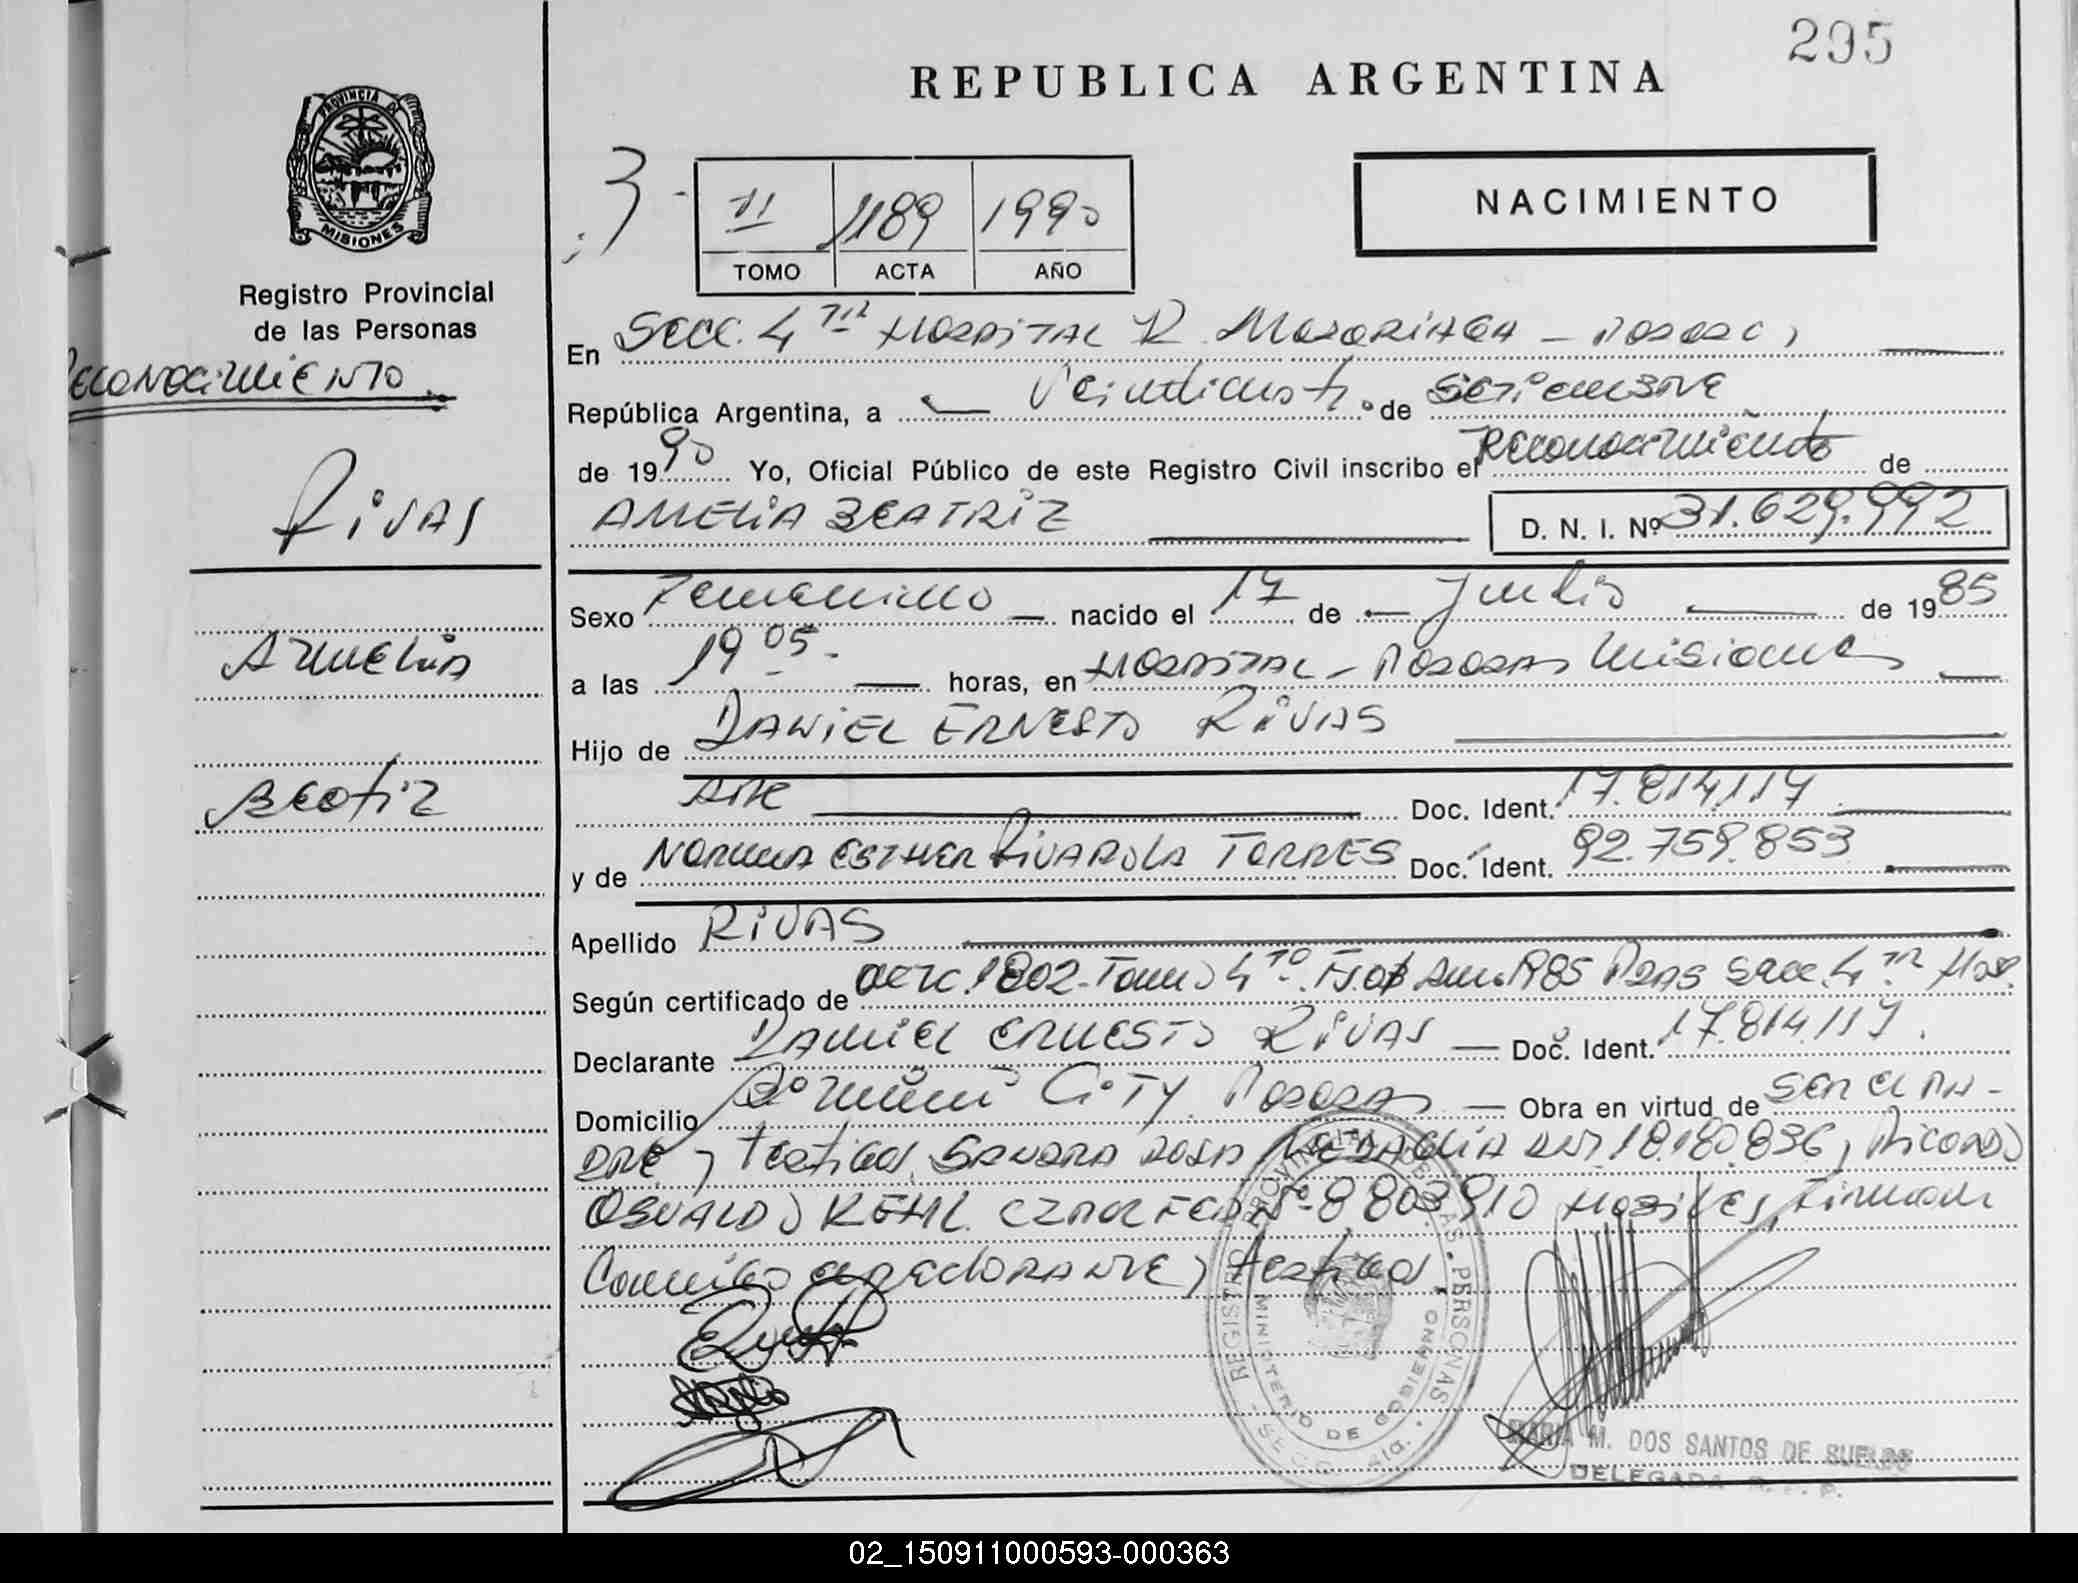 295
REPUBLICA ARGENTINA
PROVINCIA DE
MISIONES
Registro Provincial
de las Personas
Reconocimiento
3-
II 1189 1990
TOMO ACTA AÑO
NACIMIENTO
En Secc. 4ta Hospital R. Madariaga - Posadas,
República Argentina, a Veinticuatro de Setiembre
de 1990 Yo, Oficial Público de este Registro Civil inscribo el Reconocimiento de
Rivas
AMELIA BEATRIZ D. N. I. Nº 31.629.992
Sexo Femenino nacido el 17 de Julio de 1985
Amelia
a las 19 05 horas, en Hospital - Posadas Misiones
Hijo de DANIEL ERNESTO RIVAS
Beatriz
Arg Doc. Ident. 17.814.117
y de Norma ESTHER Rivarola TORRES Doc. Ident. 92.759.853
Apellido RIVAS
Según certificado de acta 1802-Tomo 4to Año 1985 Pdas Secc. 4ta Hosp.
Declarante DANIEL ERNESTO RIVAS Doc. Ident. 17.814.117.
Domicilio Bº CITY Posadas Obra en virtud de Ser el PA-
DRE y testigos SANDRA ROSA DNI 18.180.836, Ricardo
OSVALDO KEHL Nº 8803910 Hábiles, Firman
Conmigo el declarante y testigos
REGISTRO PROVINCIAL DE LAS PERSONAS
MINISTERIO DE GOBIERNO
SECC. 4ta.
MARIA M. DOS SANTOS DE SUELDO
DELEGADA R. P. P.
02_150911000593-000363